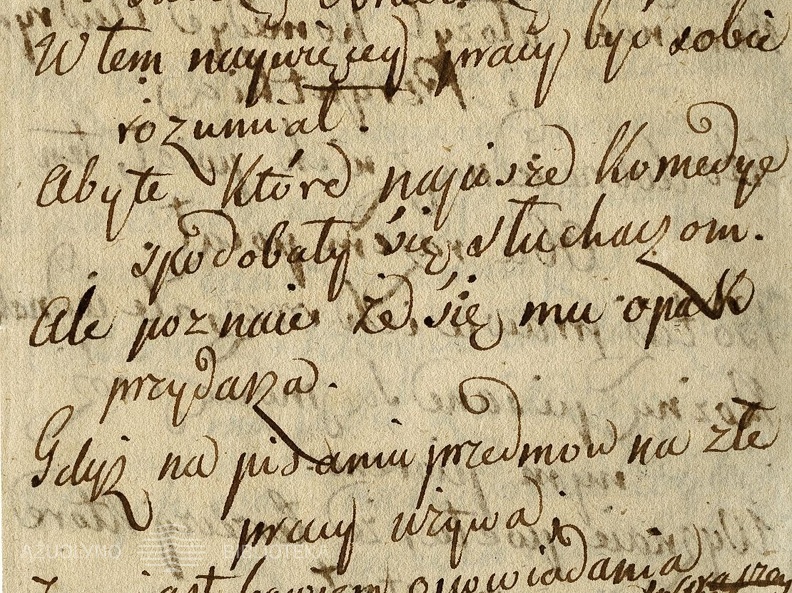 W tem naywięcey pracy być sobie
rozumiał.
Abyte które napisze komedye
spodobały się słuchaczom.
Ale poznaie że się mu opak
przydaża.
Gdyż na pisaniu przedmow na złe
pracy używa.
opowiadania
AŽUOLYNO BIBLIOTEKA